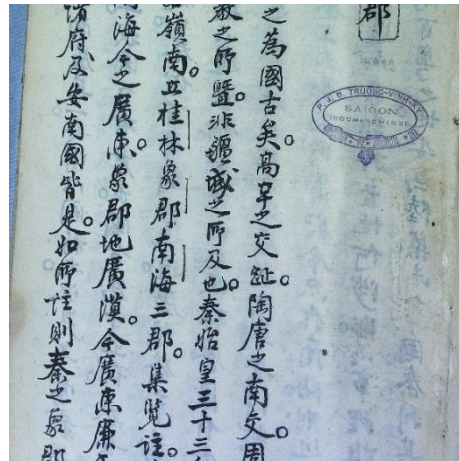 郡
P. J. B. TRUONG-VINH-KY
SAIGON
(COCHINCHINE)
之為國古矣。高辛之交趾。陶唐之南交。周
教之所暨。非疆域之所及也。秦始皇三十三
嶺南立桂林象郡南海三郡。集覽註。
海今之廣東。象郡地廣漠。今廣東廉
諸府及安南國皆是。如所註則秦之象郡